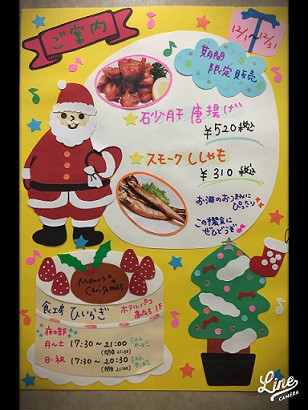 ご案内
12/1〜12/31
期間
限定販売
砂肝 唐揚げ
¥520税込
スモークししゃも
¥310税込
お酒のおつまみに
ぴったり
この機会に
ぜひどうぞ
Merry
Christmas
食工房 ひいらぎ
1F
夜の部
月〜土 17:30〜21:00
日・祝 17:30〜20:30
Line
CAMERA